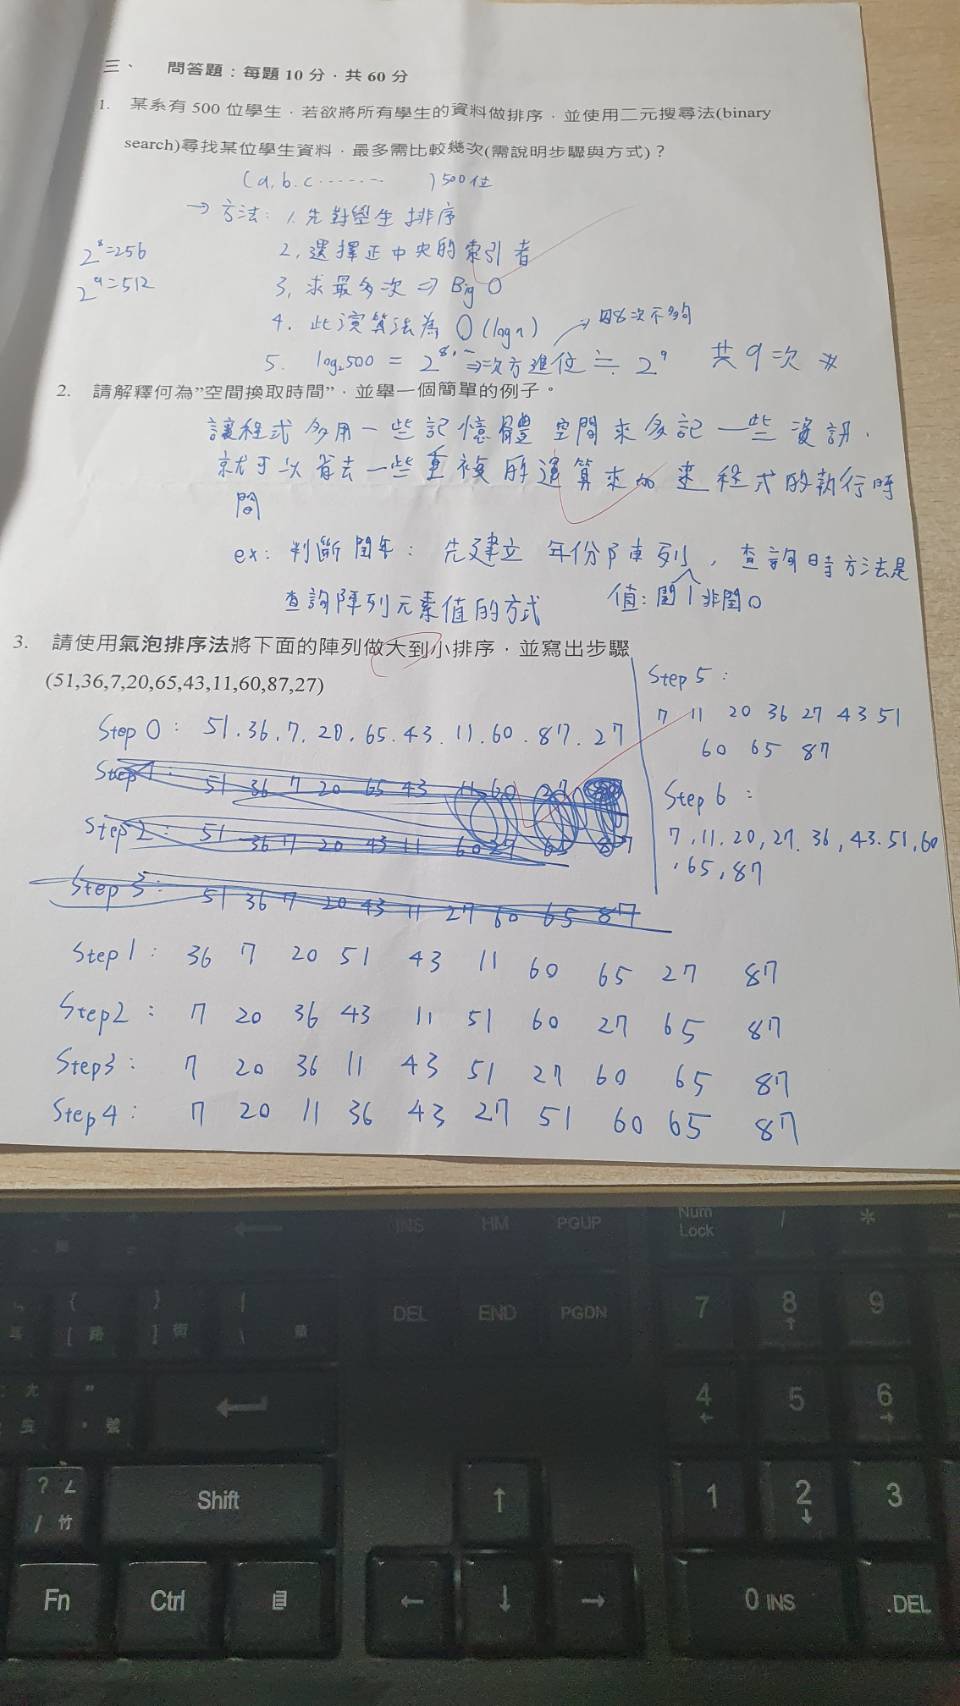 三、 問答題：每題 10 分，共 60 分
1. 某系有 500 位學生，若欲將所有學生的資料做排序，並使用二元搜尋法(binary
search)尋找某位學生資料，最多需比較幾次(需說明步驟與方式)？
(a,b,c…… )500位
→方法：1.先對學生排序
2⁸=256
2,選擇正中央的索引者
2⁹=512
3,求最多次⇒Big O
4. 此演算法為 O(logn)
因8次不夠
5. log₂500 = 2⁸·⁻⇒次方進位≒2⁹ 共9次
2. 請解釋何為"空間換取時間"，並舉一個簡單的例子。
讓程式多用一些記憶體空間來多記一些資訊，
就可以省去一些重複的運算來加速程式的執行時
間
ex: 判斷閏年：先建立年份陣列，查詢時方法是
查詢陣列元素值的方式
值:閏1非閏0
3. 請使用氣泡排序法將下面的陣列做大到小排序，並寫出步驟
(51,36,7,20,65,43,11,60,87,27)
Step0: 51.36.7.20.65.43.11.60.87.27
Step1: 51 36 7 20 65 43 11 60 27
Step2: 51 36 7 20 43 11 60 27 65 87
Step3: 51 36 7 20 43 11 27 60 65 87
Step1: 36 7 20 51 43 11 60 65 27 87
Step2: 7 20 36 43 11 51 60 27 65 87
Step3: 7 20 36 11 43 51 27 60 65 87
Step4: 7 20 11 36 43 27 51 60 65 87
Step5:
7 11 20 36 27 43 51
60 65 87
Step6:
7,11.20,27.36,43.51,60
.65,87
Num
Lock
/
*
INS
HM
PGUP
DEL
END
PGDN
7
8
9
{
}
|
[
]
\
4
5
6
"
號
?
/
竹
Shift
↑
1
2
3
Fn
Ctrl
←
↓
→
0 INS
.DEL